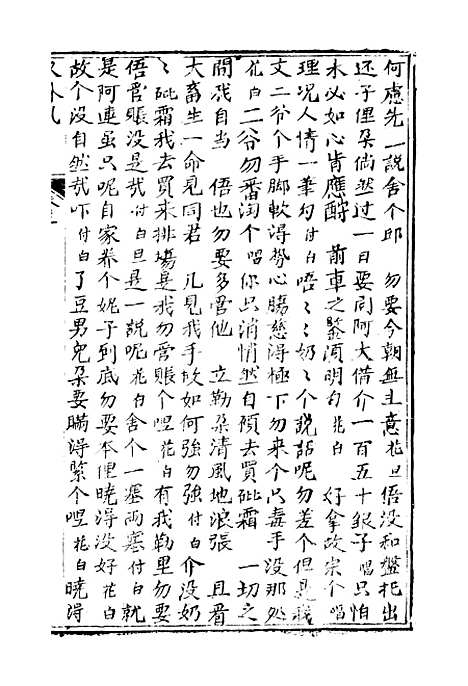 何慮先一說舍个耶　勿要今朝無主意花旦俉没和盤托出
还子俚朵倘然过一日要同阿大借介一百五十銀子唱只怕
未必如心肯應酧　前車之鑒須明白花白　好拿故宗个唱
理况人情一筆勾付白唔〻〻奶〻个說話呢勿差个但是我
丈二爷个手脚軟得勢心腸慈得極下勿来个只毒手没那処
花白二爷勿番淘个唱你只消悄然自隕去買砒霜　一切之
間我自当　俉也勿要多管他　立勒朵清風地浪張　且看
大畜生一命見同君　凡見我手故如何強勿強付白介没奶
〻砒霜我去買来排塲是我勿管賬个哩花白有我勒里勿要
俉管賬没是哉付白旦是一說呢花白舍个一塞兩塞付白就
是阿連虽只呢自家养个妮子到底勿要本俚曉得没好花白
故个没自然哉吓付白了豆男兒朵要瞞得緊个哩花白曉得